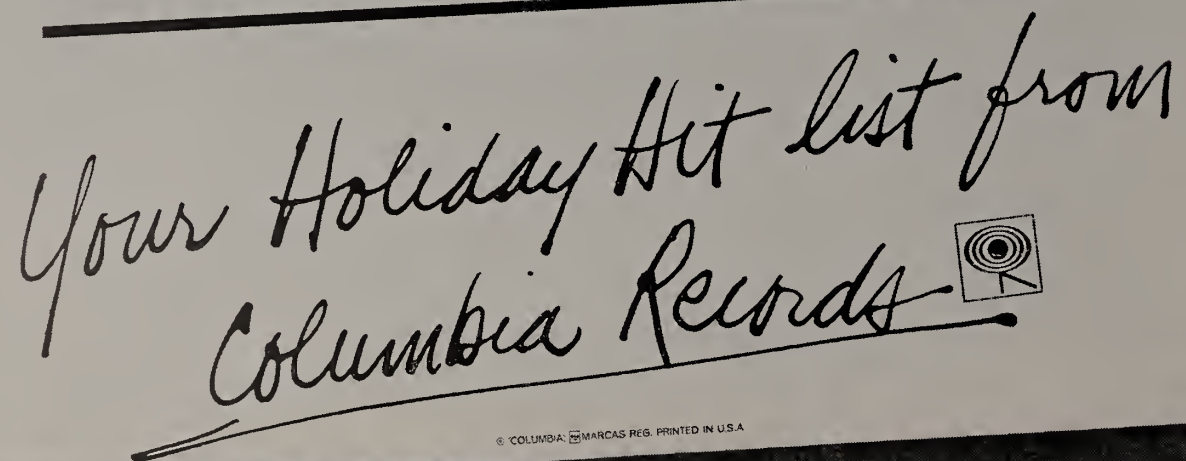 Your Holiday Hit list from
Columbia Records
® "COLUMBIA," MARCAS REG. PRINTED IN U.S.A